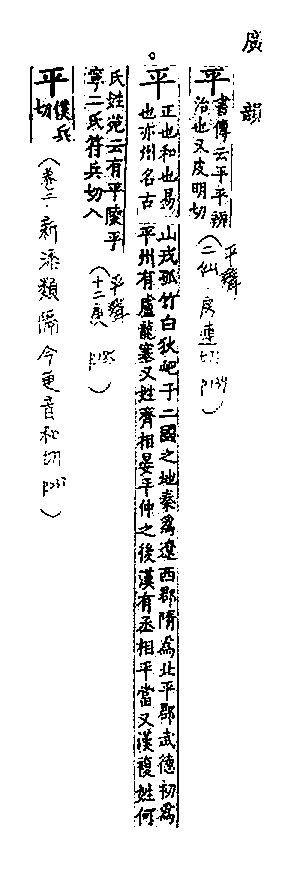 廣韻
平 書傳云平平辨
治也又皮明切
(平聲
二仙・房連切 p139)
平 正也和也易
也亦州名古
山戎孤竹白狄肥子二國之地秦為遼西郡隋為北平郡武德初為
平州有盧龍塞又姓齊相晏平仲之後漢有丞相平當又漢複姓何
氏姓苑云有平陵平
寧二氏符兵切八
(平聲
十二庚)
平 僕兵
切
(卷二・新添類隔今更音和切)